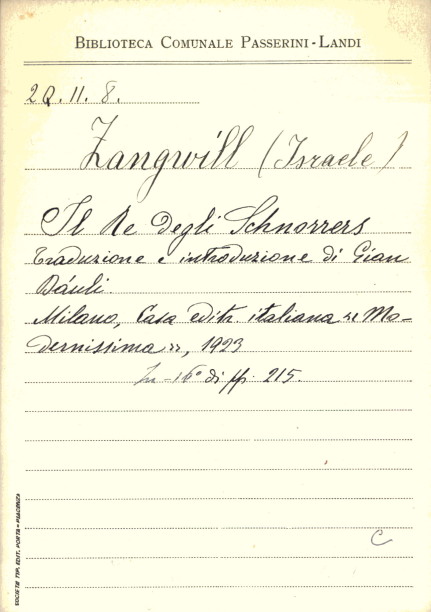 BIBLIOTECA COMUNALE PASSERINI-LANDI
2Q. 11. 8.
Zangwill (Israele)
Il Re degli Schnorrers
Traduzione e introduzione di Gian
Dáuli.
Milano, Casa editr. italiana "Mo-
dernissima", 1923
In-16° di pp. 215.
C
SOCIETÀ TIP. EDIT. PORTA - PIACENZA